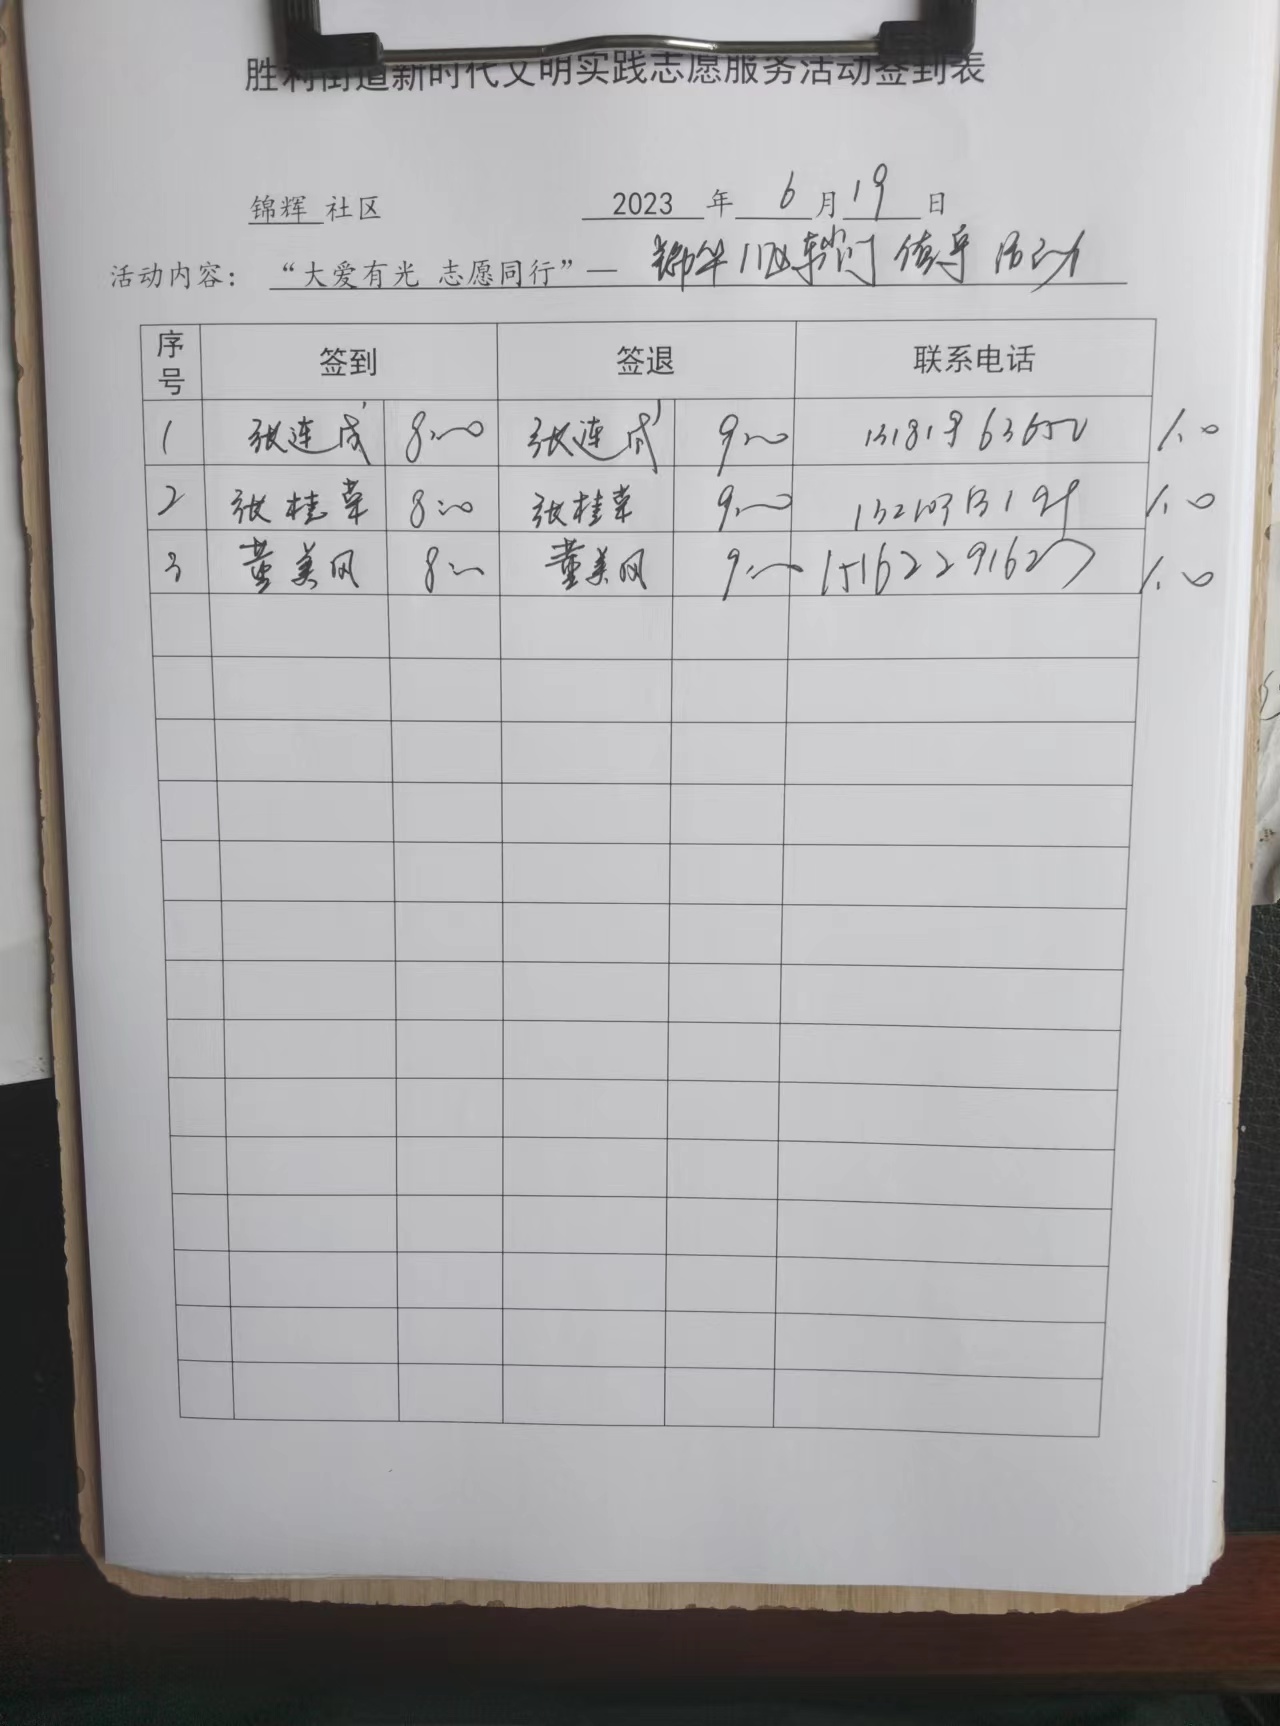 胜利街道新时代文明实践志愿服务活动签到表
锦辉 社区 2023 年 6 月 19 日
活动内容：“大爱有光 志愿同行”— 活动
序号 签到 签退 联系电话
1 张连成 8:00 张连成 9:00 1.0
2 张桂荣 8:00 张桂荣 9:00 1.0
3 董美凤 8:00 董美凤 9:00 15162291627 1.0